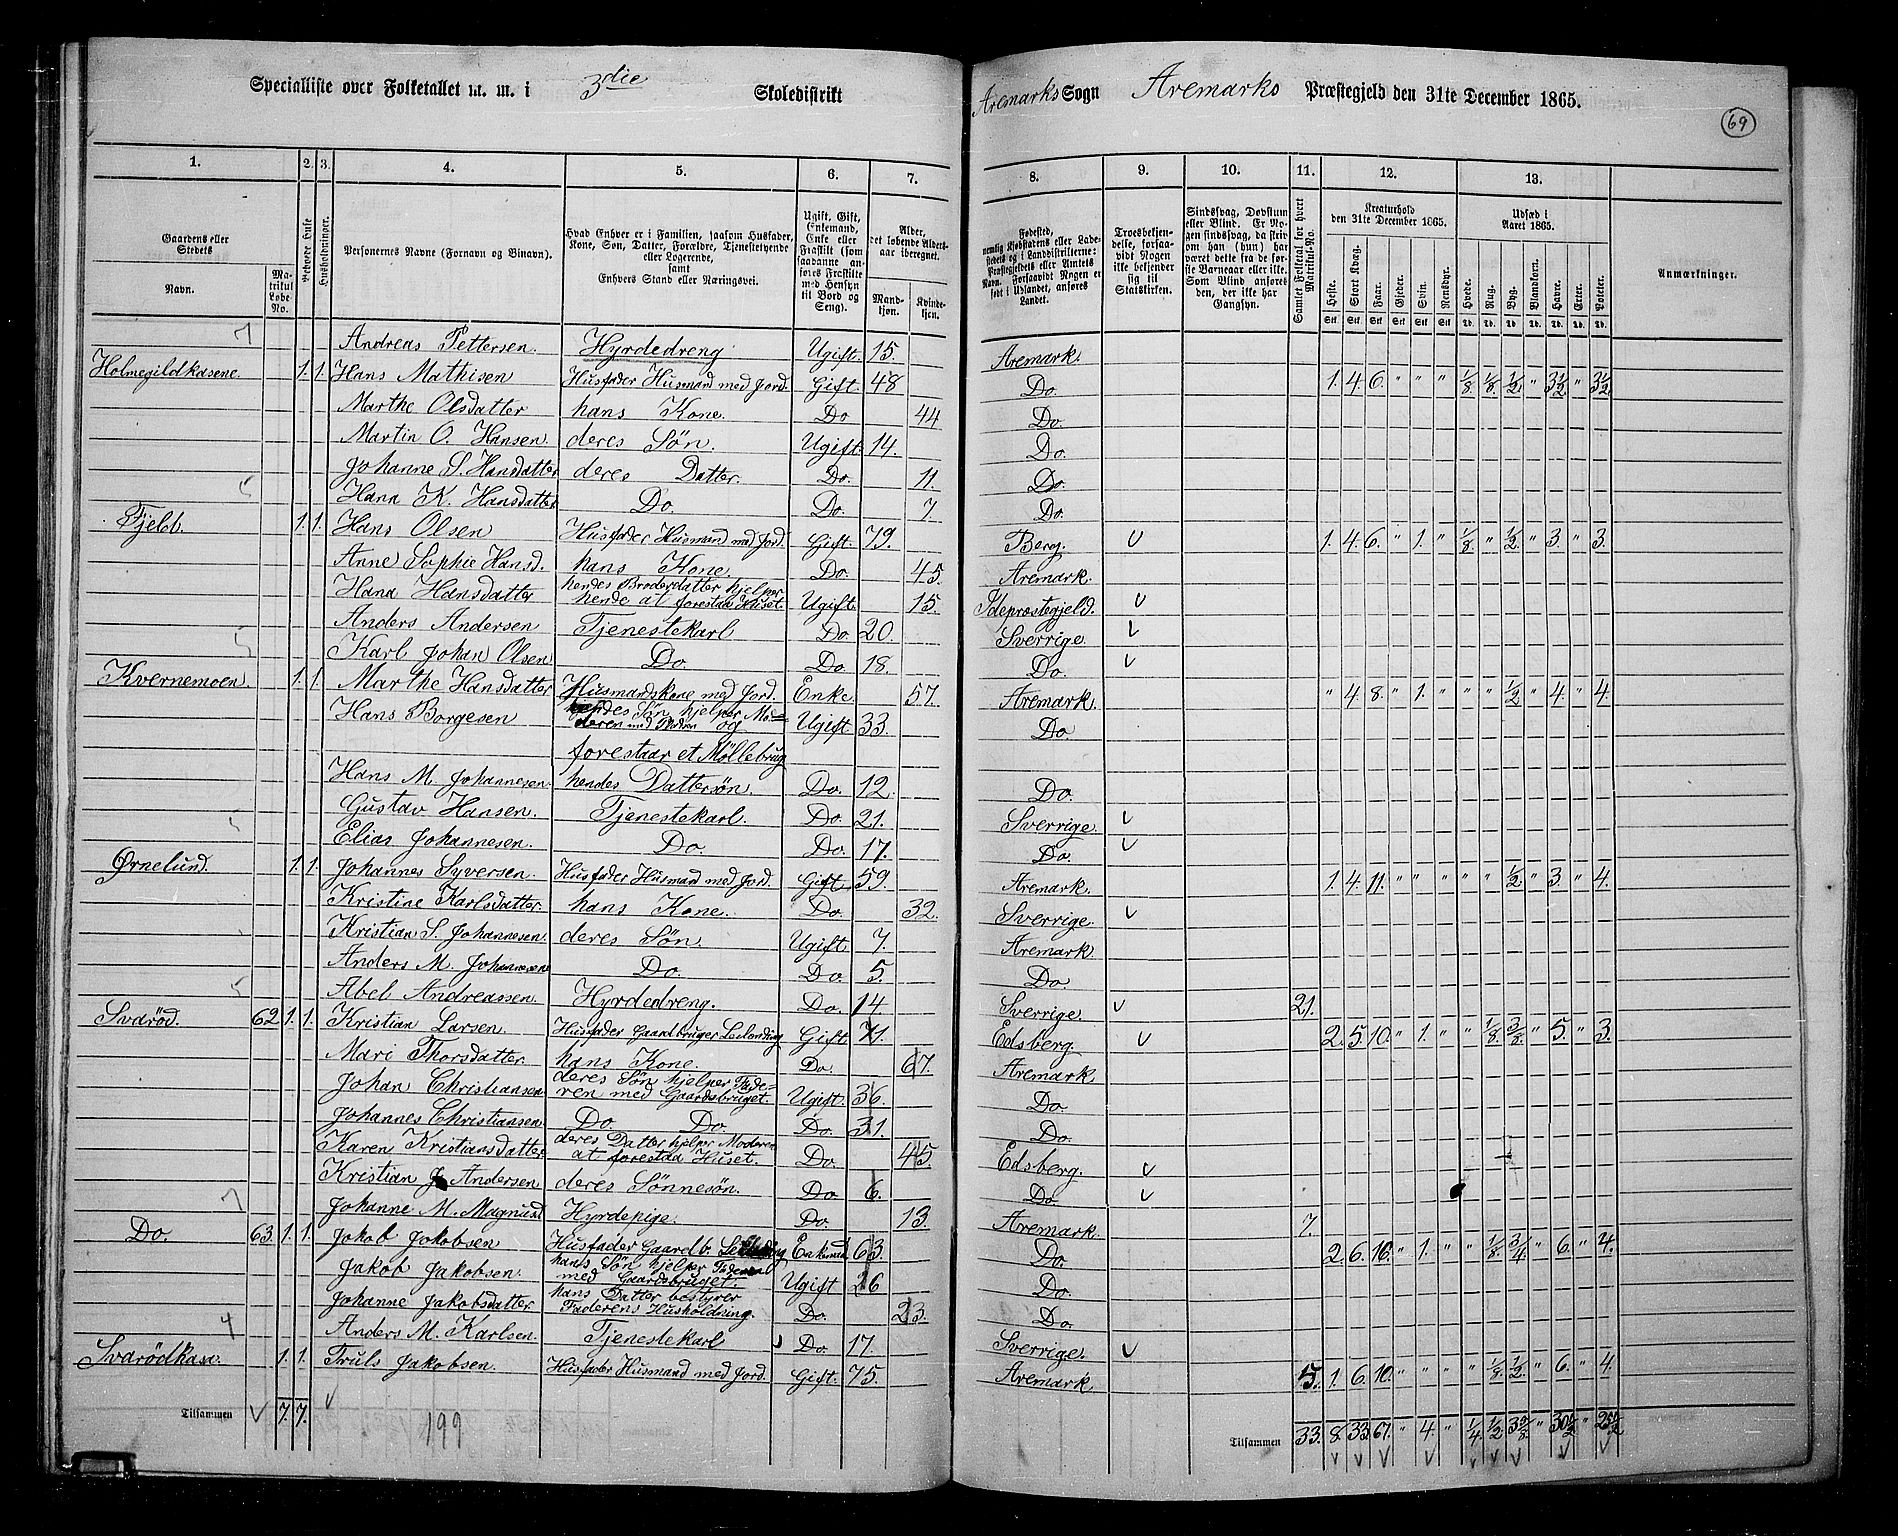 Specialliste over Folketallet m. m. i 3die Skoledistrikt Aremarks Sogn Aremarks Præstegjeld den 31te December 1865.
69
1. 2. 3. 4. 5. 6. 7. 8. 9. 10. 11. 12. 13.
Gaardens eller Stedets Navn.
Matrikul Løbe-No.
Beboede Huse
Husholdninger.
Personernes Navne (Fornavn og Binavn).
Hvad Enhver er i Familien, saasom Husfader, Kone, Søn, Datter, Forældre, Tjenestetyende eller Logerende, samt Enhvers Stand eller Næringsvei.
Ugift, Gift, Enkemand, Enke eller Fraskilt (som saadanne anføres Fraskilte med Hensyn til Bord og Seng).
Alder, det løbende Aldersaar iberegnet.
Mandkjøn. Kvindekjøn.
Fødested, nemlig Kjøbstadens eller Ladestedets og i Landdistrikterne: Præstegjeldets eller Amtets Navn. Forsaavidt Nogen er født i Udlandet, anføres Landet.
Troesbekjendelse, forsaavidt Nogen ikke bekjender sig til Statskirken.
Sindssvag, Døvstum eller Blind. Er Nogen sindssvag, da skrives om han (hun) har været dette fra de første Barneaar eller ikke. Som Blind anføres den, der ikke har Gangsyn.
Samlet Folketal for hvert Matrikul-No.
Kreaturhold den 31te December 1865.
Heste. Stort Kvæg. Faar. Gjeder. Svin. Rensdyr.
Udsæd i Aaret 1865.
Hvede. Rug. Byg. Blandkorn. Havre. Erter. Poteter.
Anmærkninger.
7 Andreas Pettersen. Hyrdedreng Ugift. 15. Aremark.
Holmegildkasene. 1. 1. Hans Mathisen Husfader Husmand med Jord. Gift. 48 Do. 1. 4. 6. " " " 1/8. 1/8. 1/2. " 3 1/2 " 3 1/2
Marthe Olsdatter hans Kone. Do 44 Do.
Martin O. Hansen. deres Søn. Ugift. 14. Do.
Johanne S. Hansdatter deres Datter. Do. 11. Do.
5 Hana K. Hansdatter Do. Do. 7 Do.
Fjeld. 1. 1. Hans Olsen Husfader Husmand med Jord. Gift. 79. Berg. 1. 4. 6. " 1. " 1/8. " 1/2 " 3. " 3.
Anne Sophie Hansd. hans Kone. Do. 45. Aremark.
Hana Hansdatter hendes Broderdatter hjelper
hende at forestaa Huset. Ugift. 15. Idepræstegjeld.
Anders Andersen Tjenestekarl Do 20. Sverrige.
5 Karl Johan Olsen Do. Do. 18. Do.
Kvernemoen. 1. 1. Marthe Hansdatter Husmandskone med Jord. Enke. 57. Aremark. " 4. 8. " 1. " " " 1/2 " 4. " 4.
Hans Borgesen hendes Søn hjelper Mo=
deren og Ugift 33. Do.
forestaar et Møllebrug
Hans M. Johannesen. hendes Dattersøn. Do. 12. Do.
5 Gustav Hansen. Tjenestekarl. Do. 21. Sverrige.
Elias Johannesen. Do. Do. 17. Do.
Ørnelund. 1. 1. Johannes Syversen. Husfader Husmand med Jord. Gift 59. Aremark. 1. 4. 11. " " " " " 1/2 " 3. " 4.
Kristine Karlsdatter. hans Kone. Do. 32. Sverrige.
Kristian S. Johannesen. deres Søn. Ugift. 7. Aremark.
Anders M. Johannesen Do. Do. 5. Do.
5 Abel Andreassen Hyrdedreng. Do. 14 Sverrige. 21.
Svarød. 62 1. 1. Kristian Larsen. Husfader Gaardbruger Leilending Gift. 71. Edsberg. 2. 5. 10. " 1. " " 1/8. 3/8. " 5. " 3.
Mari Thorsdatter. hans Kone. Do. 67. Aremark.
Johan Christiansen. deres Søn hjelper Fade=
ren med Gaardsbruget. Ugift. 36. Do
Johannes Christiansen Do. Do. Do. 31. Do.
Karen Kristiansdatter deres Datter hjelper Moderen
at forestaa Huset. Do. 45. Edsberg.
Kristian J. Andersen deres Sønnesøn. Do 6. Do
7 Johanne M. Magnusd Hyrdepige. Do. 13. Aremark. 7.
Do. 63. 1. 1. Jakob Jakobsen Husfader Gaardb. Leilending Enkmd 63. Do. 2. 6. 10. " 1. " " 1/8 3/4 " 6. " 4.
Jakob Jakobsen. hans Søn hjelper Faderen
med Gaardsbruget. Ugift 26 Do.
Johanne Jakobsdatter. hans Datter bestyrer
Faderens Husholdning. Do. 23. Do.
4 Anders M. Karlsen. Tjenestekarl Do 17. Sverrige.
Svarødkasa. 1. 1. Truls Jakobsen. Husfader Husmand med Jord. Gift. 75. Aremark 5. 1. 6. 10. " " " " 1/8. 1/2. " 6. " 4.
Tilsammen 7. 7. 199 Tilsammen 33. 8. 33. 67. " 4. " 1/4 1/2 3 5/8. " 30 1/2 " 25 1/2